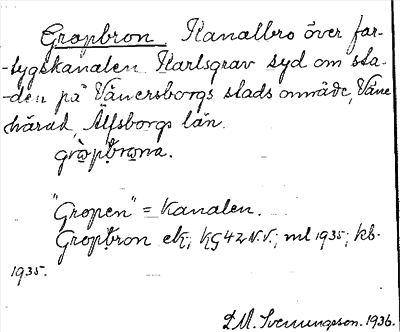 Gropbron Kanalbro över far-
-tygskanalen Karlsgrav syd om sta-
-den på Vänersborgs stads område, Väne
härad, Älfsborgs län.
gròpbrωna.
"Gropen" = Kanalen.
Gropbron ek; KG42 N.V.; ml 1935; kb.
1935.
D.M. Svenungsson. 1936.